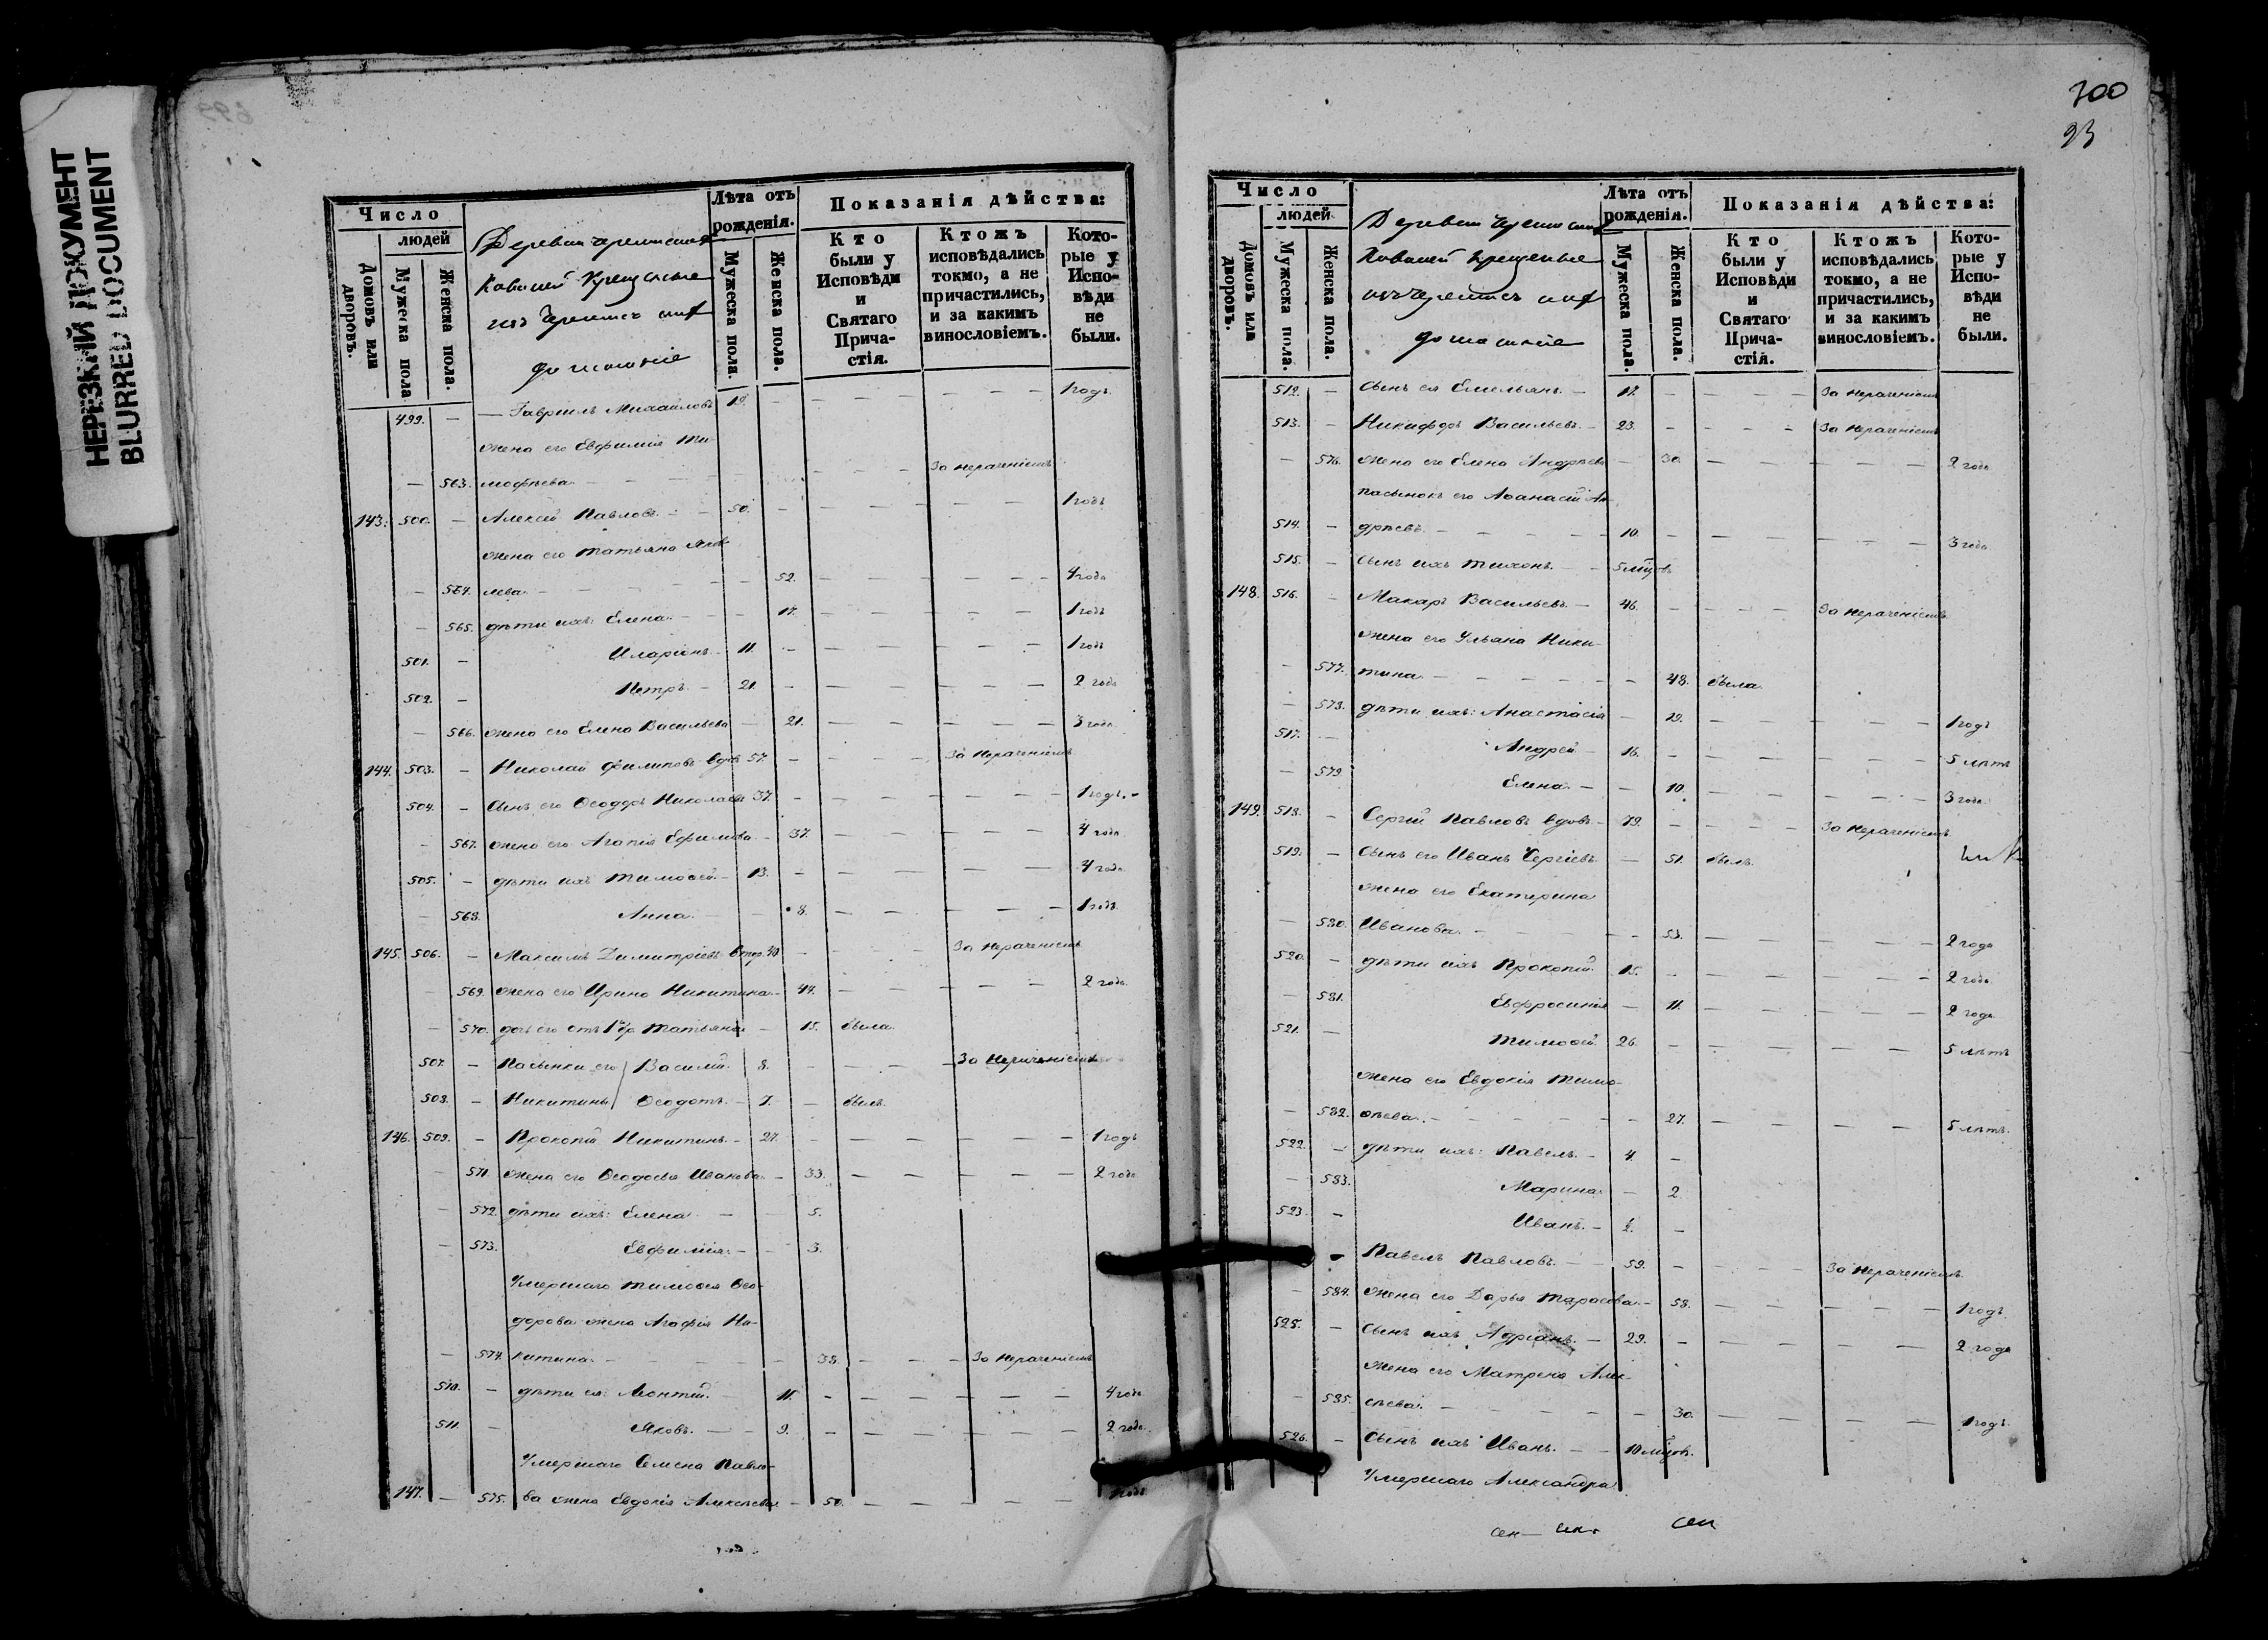 НЕРЕЗКИЙ ДОКУМЕНТ
BLURRED DOCUMENT
Число
людей
Домовъ или дворовъ.
Мужеска пола
Женска пола.
Деревни
Крещеные
изъ
Лѣта отъ рождения.
Мужеска пола.
Женска пола.
Показанія дѣйства:
Кто были у Исповѣди и Святаго Причастія.
Ктожъ исповѣдались токмо, а не причастились, и за какимъ винословіемъ.
Которые у Исповѣди не были.
499. — — Гавріилъ Михайловъ 19. — — — — — — 1 годъ
жена его Евфимія Ти-
— 563. мофѣева — — — — — — За нераченіемъ
143. 500. — Алексей Павловъ — 50. — — — — — — 1 годъ
жена его Татьяна Яков-
— 564. лева — — — — 52. — — — — — 4 года
— 565. дѣти ихъ: Елена — — 17. — — — — — 1 годъ
501. — Иларіонъ — 11. — — — — — — 1 годъ
502. — Петръ — 21. — — — — — — 2 года
— 566. жена его Елена Васильева — 21. — — — — — 3 года
144. 503. — Николай Филиповъ вдов. 57. — — — — За нераченіемъ
504. — Сынъ его Ѳеодоръ Николаевъ 37. — — — — — — 1 годъ. -
— 567. жена его Агапія Ефимова — 37. — — — — — 4 года
505. — дѣти ихъ Тимоѳей — 13. — — — — — — 4 года
— 568. Анна — — 8. — — — — — 1 годъ
145. 506. — Максимъ Димитріевъ втор. 40 — — — — За нераченіемъ
— 569. жена его Ирина Никитина — 44. — — — — — 2 года
— 570. дочь его отъ 1 бр Татьяна — 15. была
507. — Пасынки его Василій 8. — — — — За нераченіемъ
508. — Никитины Ѳеодотъ — 7. — былъ
146. 509. — Прокопій Никитинъ — 27. — — — — — — 1 годъ
— 571. жена его Ѳеодосья Иванова — 33. — — — — — 2 года
— 572. дѣти ихъ: Елена — — 5.
— 573. Евфимія — — 3.
Умершаго Тимоѳея Ѳео-
дорова жена Агафія Ни-
— 574. китина — — — — 38. — — — За нераченіемъ
510. — дѣти ея: Леонтій — 11. — — — — — — 4 года
511. — Яковъ — — 9. — — — — — — 2 года
Умершаго Семена Павло-
147. — 575. ва жена Евдокія Алексѣева — 50. — — — — — 1 годъ
700
93
Число
людей
Домовъ или дворовъ.
Мужеска пола.
Женска пола.
Деревни
крещеные
изъ
Лѣта отъ рожденія.
Мужеска пола.
Женска пола.
Показанія дѣйства:
Кто были у Исповѣди и Святаго Причастія.
Ктожъ исповѣдались токмо, а не причастились, и за какимъ винословіемъ.
Которые у Исповѣди не были.
512. — Сынъ ея Емельянъ — 17. — — — — За нераченіемъ
513. — Никифоръ Васильевъ — 23. — — — — За нераченіемъ
— 576. жена его Елена Андрѣева — 30. — — — — — 2 года
пасынокъ его Аѳанасій Ан-
514. — дрѣевъ — — — — — 10. — — — — — — 3 года
515. — Сынъ ихъ Тихонъ — — 5 мѣцовъ
148. 516. — Макаръ Васильевъ — 46. — — — — За нераченіемъ
жена его Ульяна Ники-
— 577. тина — — — — — — 48. была
— 578. дѣти ихъ: Анастасія — 19. — — — — — 1 годъ
517. — Андрей — 16. — — — — — — 5 лѣтъ
— 579. Елена — — 10. — — — — — 3 года
149. 518. — Сергій Павловъ вдовъ — 79. — — — — За нераченіемъ
519. — Сынъ его Иванъ Сергіевъ — 51. былъ
жена его Екатерина
— 580. Иванова — — — — — 53. — — — — — 2 года
520. — дѣти ихъ Прокопій 15. — — — — — — 2 года
— 581. Евфросинія — 11. — — — — — 2 года
521. — Тимоѳей 26. — — — — — — 5 лѣтъ
жена его Евдокія Тимо-
— 582. ѳѣева — — — — — — 27. — — — — — 5 лѣтъ.
522. — дѣти ихъ: Павелъ — 4. —
— 583. Марина — 2
523. — Иванъ — ½. —
— Павелъ Павловъ — — 59. — — — — За нераченіемъ
— 584. жена его Дарья Тарасова — 58. — — — — — 1 годъ
525. — Сынъ ихъ Адріанъ — 29. — — — — — 2 года
жена его Матрена Алек-
— 585. сѣева — — — — — — 30. — — — — — 1 годъ
526. — Сынъ ихъ Иванъ — — 10 мѣцов.
Умершаго Александра